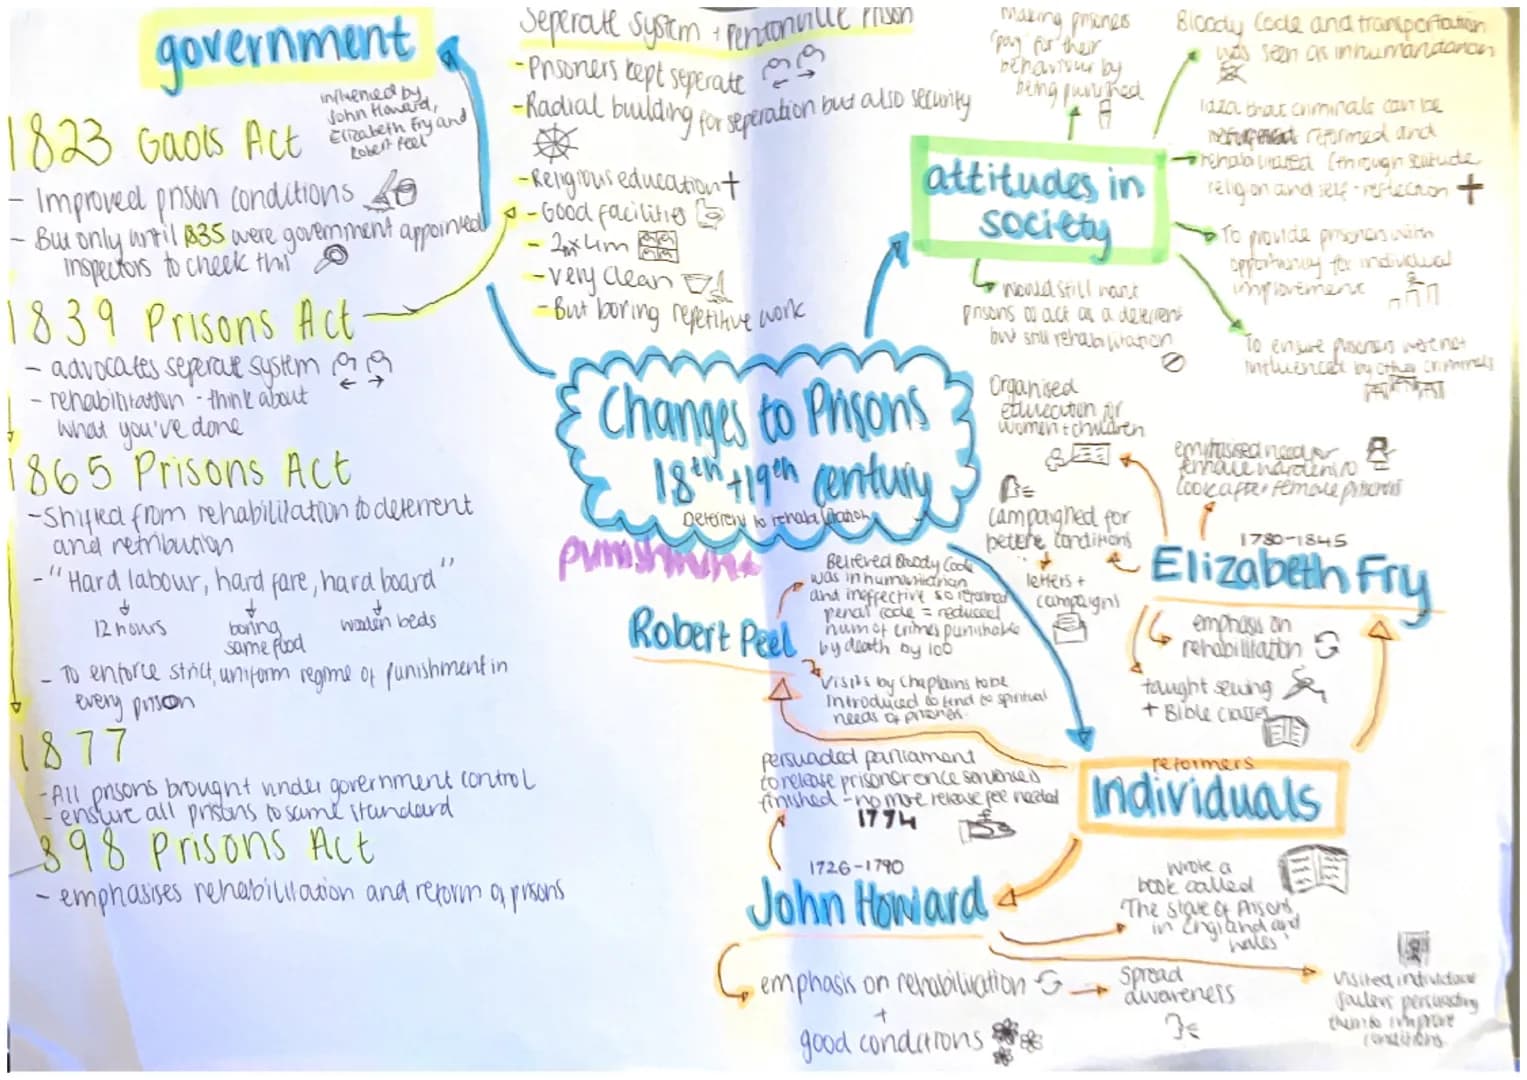 government
influenced by
John Howard,
Elizabeth Fry and
Robert Peel
1823 Gaols Act
- Improved prison conditions
- But only until 1835 were government appointed
inspectors to check this
1839 Prisons Act
- advocates seperate system
- rehabilitation - think about
what you've done
1865 Prisons Act
- Shifted from rehabilitation to deterrent
and retribution
- "Hard labour, hard fare, hard board"
12 hours
boring
same food
wooden beds
- To enforce strict, uniform regime of punishment in
every prison
1877
- All prisons brought under government control
- ensure all prisons to same standard
898 Prisons Act
- emphasises rehabilitation and reform of prisons
Seperate system + Pentonville Prison
- Prisoners kept seperate
- Radial building for seperation but also security
- Religious education
- Good facilities
- 2m x 4m
- very clean
- But boring repetitive work
Changes to Prisons
18th + 19th century
Deterrent to rehabilitation
punishment
attitudes in
society
Making prisoners
'pay' for their
behaviour by
being punished
Bloody Code and transportation
was seen as inhumanitarian
Idea that criminals can be
reformed and
rehabilitated (through solitude,
religion and self-reflection
To provide prisoners with
opportunity for individual
improvement
To ensure prisoners were not
influenced by other criminals
would still want
prisons to act as a deterrent
but still rehabilitation
Organised
education for
women + children
emphasised need for
female wardens to
look after female prisoners
campaigned for
better conditions
letters +
campaigns
1780-1845
Elizabeth Fry
emphasis on
rehabilitation
taught sewing
+ Bible classes
Robert Peel
Believed Bloody Code
was inhumanitarian
and ineffective so reformed
penal code = reduced
num of crimes punishable
by death by 100
Visits by Chaplains to be
introduced to tend to spiritual
needs of prisoners.
reformers
Individuals
persuaded parliament
to release prisoner once sentence is
finished - no more release fee needed
1774
1726-1790
John Howard
wrote a
book called
'The State of Prisons
in England and
Wales'
emphasis on rehabilitation
+
good conditions
spread
awareness
Visited individual
jailers persuading
them to improve
conditions.